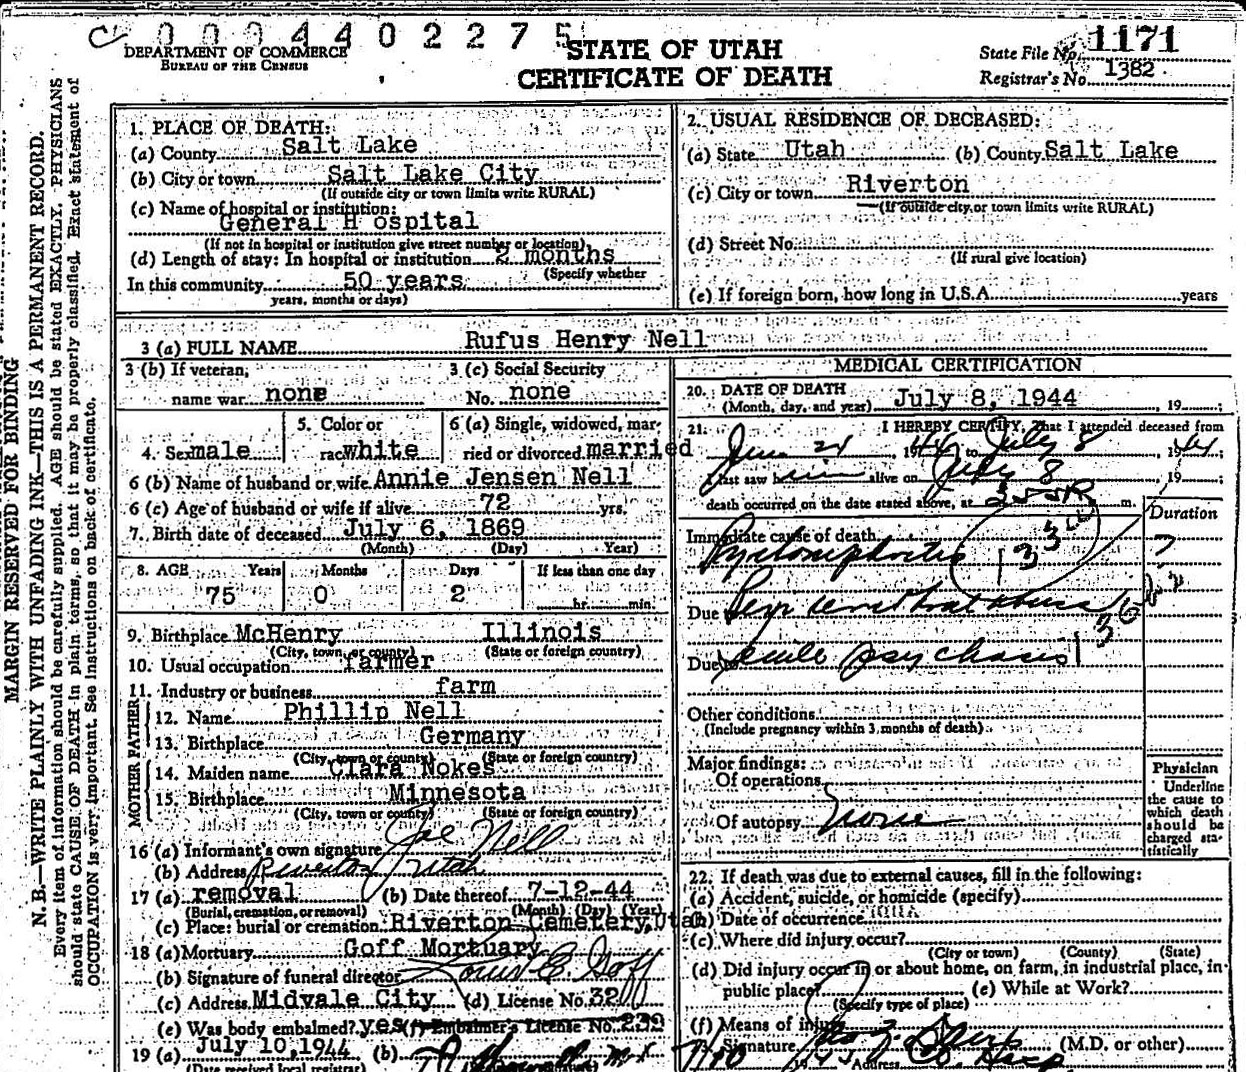 0 0 0 4 4 0 2 2 7 5
DEPARTMENT OF COMMERCE
BUREAU OF THE CENSUS
STATE OF UTAH
CERTIFICATE OF DEATH
State File No. 1171
Registrar's No. 1382
MARGIN RESERVED FOR BINDING
N. B.—WRITE PLAINLY WITH UNFADING INK—THIS IS A PERMANENT RECORD.
Every item of information should be carefully supplied. AGE should be stated EXACTLY. PHYSICIANS
should state CAUSE OF DEATH in plain terms, so that it may be properly classified. Exact statement of
OCCUPATION is very important. See instructions on back of certificate.
1. PLACE OF DEATH:
(a) County Salt Lake
(b) City or town Salt Lake City
(If outside city or town limits write RURAL)
(c) Name of hospital or institution:
General H ospital
(If not in hospital or institution give street number or location)
(d) Length of stay: In hospital or institution 2 months
(Specify whether
In this community 50 years
years, months or days)
2. USUAL RESIDENCE OF DECEASED:
(a) State Utah (b) County Salt Lake
(c) City or town Riverton
(If outside city or town limits write RURAL)
(d) Street No.
(If rural give location)
(e) If foreign born, how long in U.S.A. years
3 (a) FULL NAME Rufus Henry Nell
3 (b) If veteran,
name war none
3 (c) Social Security
No. none
4. Sex male
5. Color or
race white
6 (a) Single, widowed, mar-
ried or divorced married
6 (b) Name of husband or wife Annie Jensen Nell
6 (c) Age of husband or wife if alive 72 yrs.
7. Birth date of deceased July 6, 1869
(Month) (Day) Year)
8. AGE Years Months Days If less than one day
75 0 2 hr. min.
9. Birthplace McHenry Illinois
(City, town, or county) (State or foreign country)
10. Usual occupation farmer
11. Industry or business farm
FATHER
12. Name Phillip Nell
13. Birthplace Germany
(City, town or county) (State or foreign country)
MOTHER
14. Maiden name Clara Nokes
15. Birthplace Minnesota
(City, town or county) (State or foreign country)
16 (a) Informant's own signature Joe Nell
(b) Address Riverton Utah
17 (a) removal (b) Date thereof 7-12-44
(Burial, cremation, or removal) (Month) (Day) (Year)
(c) Place: burial or cremation Riverton Cemetery, Utah
18 (a) Mortuary Goff Mortuary
(b) Signature of funeral director Louis C. Goff
(c) Address Midvale City (d) License No. 32
(e) Was body embalmed? yes (f) Embalmer's License No. 232
19 (a) July 10, 1944 (b)
(Date received local registrar)
MEDICAL CERTIFICATION
20. DATE OF DEATH
(Month, day, and year) July 8, 1944 , 19 ;
21. I HEREBY CERTIFY, That I attended deceased from
June 21 , 1944 to July 8 , 1944;
I last saw him alive on July 8 , 19 ;
death occurred on the date stated above, at m.
Duration
Immediate cause of death
Pyelonephritis 133 ?
Due
Due to senile psychosis
Other conditions
(Include pregnancy within 3 months of death)
Major findings:
Of operations
Of autopsy None
Physician
Underline
the cause to
which death
should be
charged sta-
tistically
22. If death was due to external causes, fill in the following:
(a) Accident, suicide, or homicide (specify)
(b) Date of occurrence
(c) Where did injury occur?
(City or town) (County) (State)
(d) Did injury occur in or about home, on farm, in industrial place, in
public place? (e) While at Work?
(Specify type of place)
(f) Means of injury
Signature (M.D. or other)
Address Co. Hosp